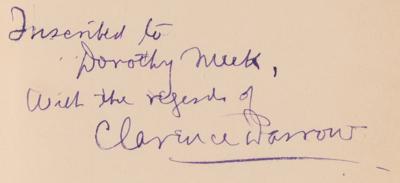 Inscribed to
Dorothy Meek,
With the regards of
Clarence Darrow